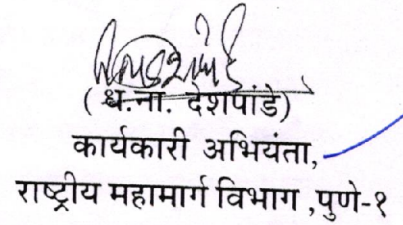 ( ध.ना. देशपांडे)
कार्यकारी अभियंता,
राष्ट्रीय महामार्ग विभाग ,पुणे-१